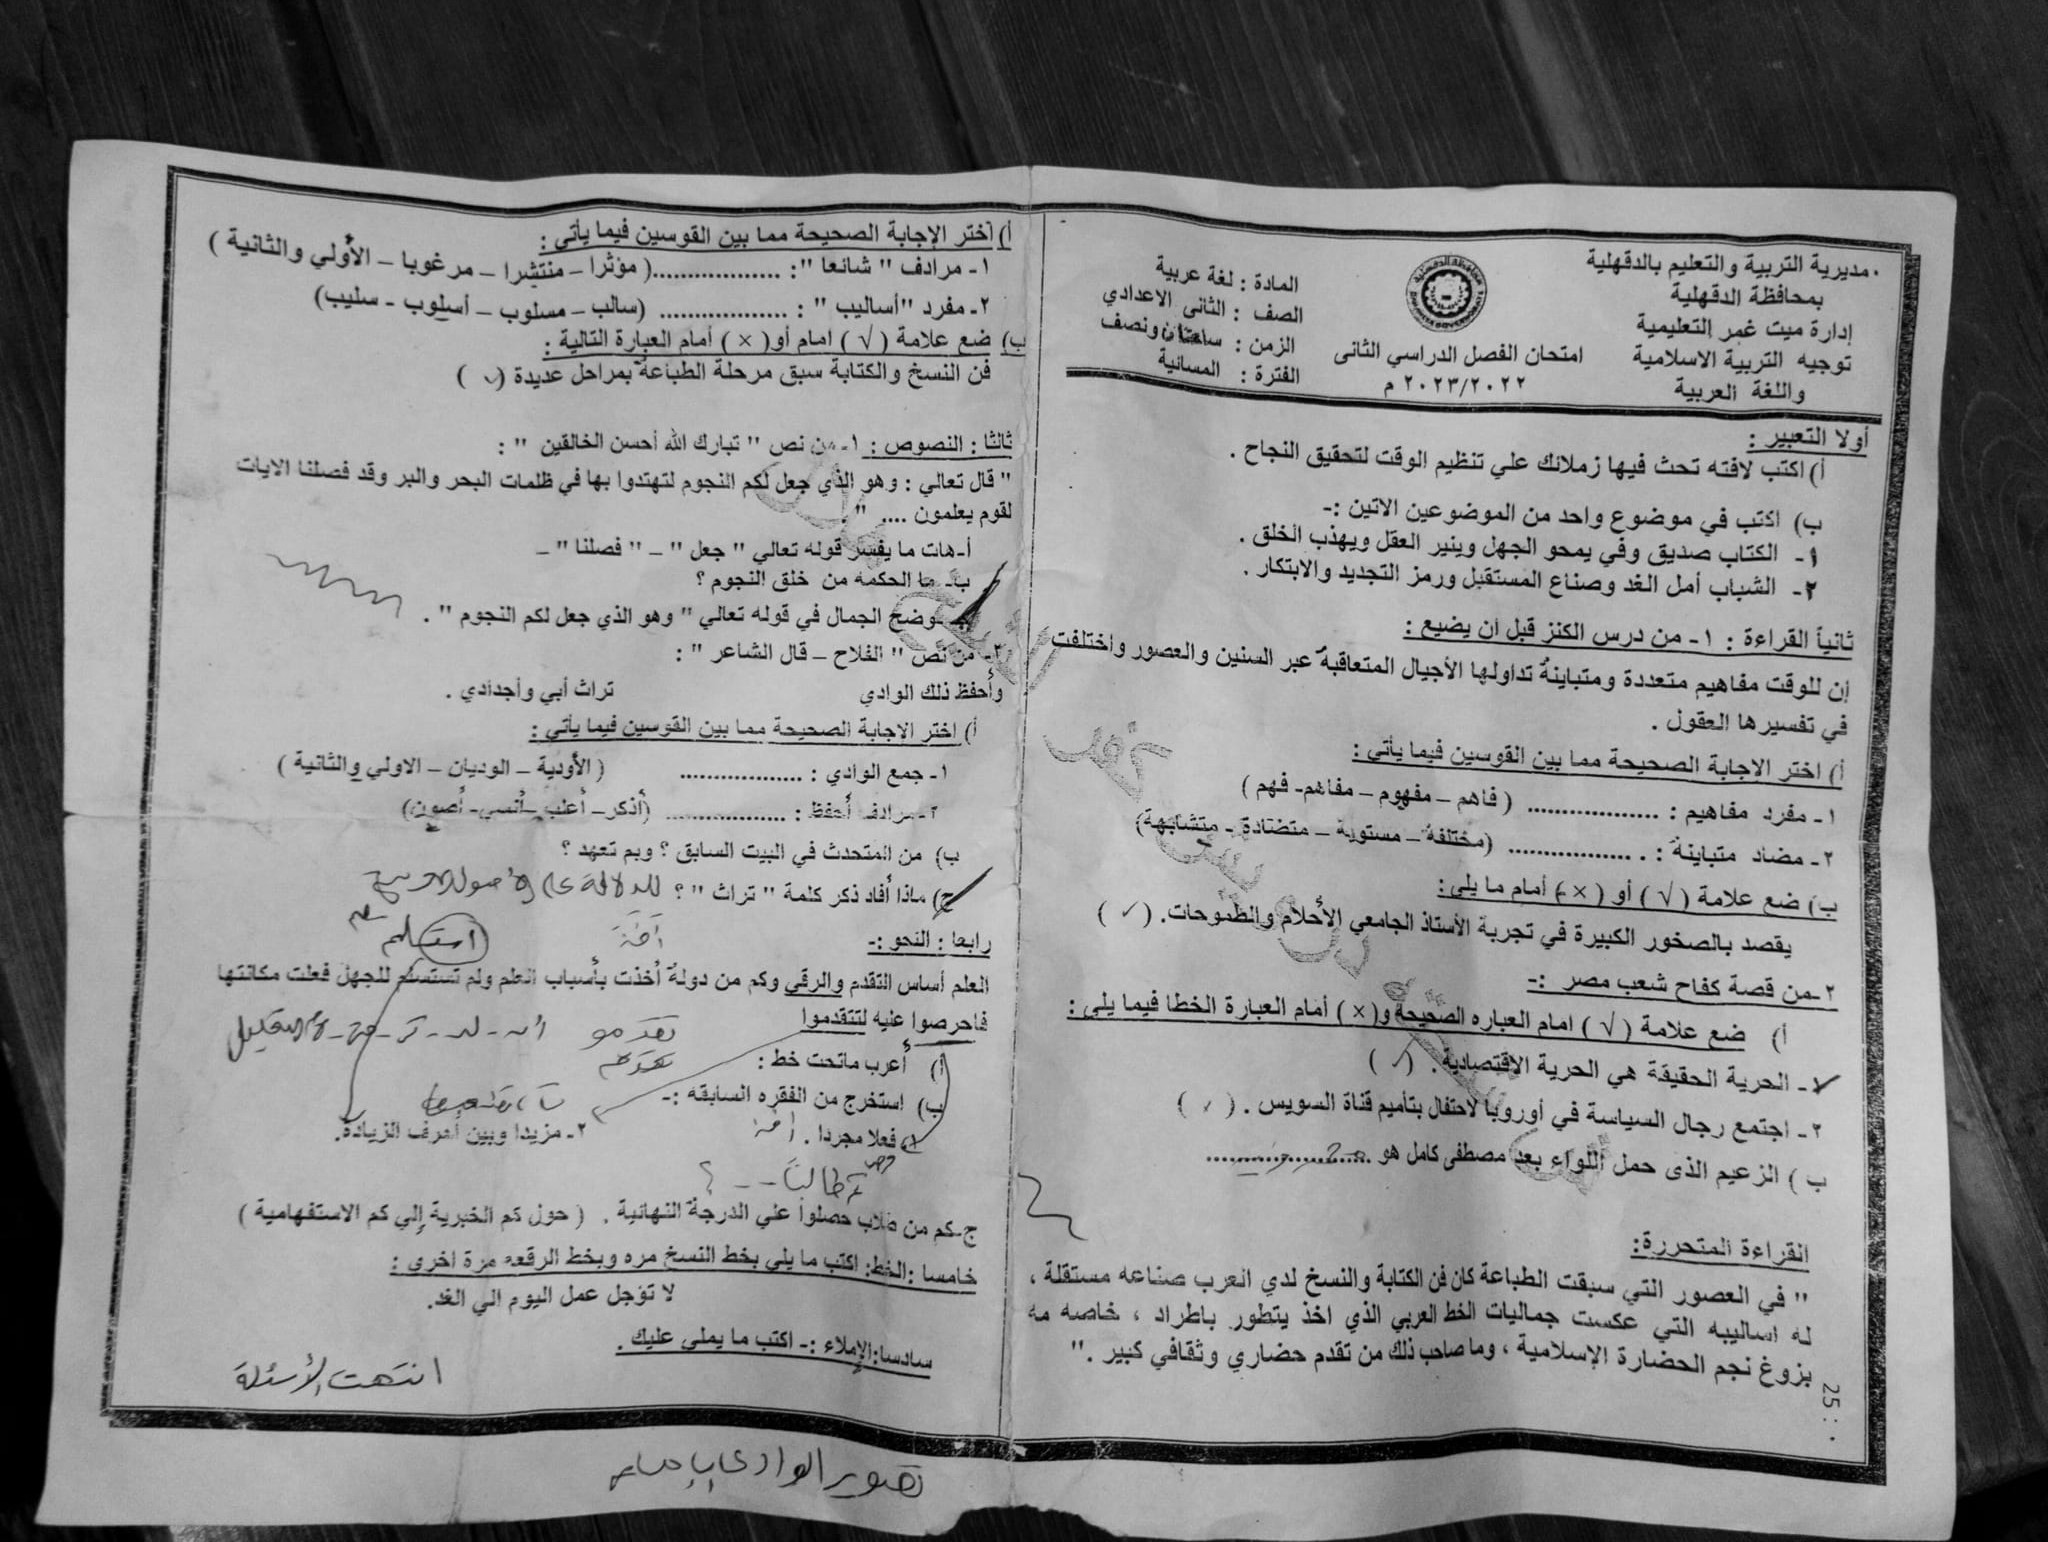 مديرية التربية والتعليم بالدقهلية
بمحافظة الدقهلية
إدارة ميت غمر التعليمية
توجيه التربية الاسلامية
واللغة العربية
امتحان الفصل الدراسي الثانى
٢٠٢٣/٢٠٢٢ م
المادة : لغة عربية
الصف : الثانى الاعدادي
الزمن : ساعتان ونصف
الفترة : المسائية
أولا التعبير :
أ) اكتب لافته تحث فيها زملائك علي تنظيم الوقت لتحقيق النجاح .
ب) اكتب في موضوع واحد من الموضوعين الاتين :-
١- الكتاب صديق وفي يمحو الجهل وينير العقل ويهذب الخلق .
٢- الشباب أمل الغد وصناع المستقبل ورمز التجديد والابتكار .
ثانياً القراءة : ١- من درس الكنز قبل ان يضيع :
إن للوقت مفاهيم متعددة ومتباينة تداولها الأجيال المتعاقبة عبر السنين والعصور واختلفت
في تفسيرها العقول .
أ) اختر الاجابة الصحيحة مما بين القوسين فيما يأتى :
١- مفرد مفاهيم : .................. ( فاهم – مفهوم – مفاهم- فهم )
٢- مضاد متباينة : .................. (مختلفة – مستوية – متضادة - متشابهة)
ب) ضع علامة ( √ ) أو ( × ) أمام ما يلى:
يقصد بالصخور الكبيرة في تجربة الأستاذ الجامعي الأحلام والطموحات. ( ✓ )
٢-من قصة كفاح شعب مصر :-
أ) ضع علامة ( √ ) امام العباره الصحيحة و( × ) أمام العبارة الخطا فيما يلى :
١- الحرية الحقيقة هي الحرية الاقتصادية . ( ✓ )
٢- اجتمع رجال السياسة في أوروبا لاحتفال بتأميم قناة السويس . ( ✓ )
ب ) الزعيم الذى حمل اللواء بعد مصطفى كامل هو ......................
القراءة المتحررة:
" في العصور التي سبقت الطباعة كان فن الكتابة والنسخ لدي العرب صناعه مستقلة ،
له اساليبه التي عكست جماليات الخط العربي الذي اخذ يتطور باطراد ، خاصه مه
بزوغ نجم الحضارة الإسلامية ، وما صاحب ذلك من تقدم حضاري وثقافي كبير ."
أ) اختر الإجابة الصحيحة مما بين القوسين فيما يأتى :
١- مرادف " شائعا " : ..................( مؤثرا – منتشرا – مرغوبا – الأولي والثانية )
٢- مفرد "أساليب " : .................. (سالب – مسلوب – أسلوب - سليب)
ب) ضع علامة ( √ ) امام أو( × ) أمام العبارة التالية :
فن النسخ والكتابة سبق مرحلة الطباعة بمراحل عديدة ( ✓ )
ثالثا : النصوص : ١- من نص " تبارك الله أحسن الخالقين " :
" قال تعالي : وهو الذي جعل لكم النجوم لتهتدوا بها في ظلمات البحر والبر وقد فصلنا الايات
لقوم يعلمون .... "
أ-هات ما يفسر قوله تعالي " جعل " – " فصلنا " –
ب- ما الحكمه من خلق النجوم ؟
وضح الجمال في قوله تعالي " وهو الذي جعل لكم النجوم " .
٢- من نص " الفلاح – قال الشاعر " :
وأحفظ ذلك الوادي تراث أبي وأجدادي .
أ) اختر الاجابة الصحيحة مما بين القوسين فيما يأتى :
١- جمع الوادي : .................. ( الأودية – الوديان – الاولي والثانية )
٢- مرادف أحفظ : .................. (أذكر– أعلب –أنسي- أصون)
ب) من المتحدث في البيت السابق ؟ وبم تعهد ؟
ج) ماذا أفاد ذكر كلمة " تراث " ؟ للدلالة على
استسلم
رابعا : النحو :-
العلم أساس التقدم والرقي وكم من دولة أخذت بأسباب العلم ولم تستسلم للجهل فعلت مكانتها
فاحرصوا عليه لتتقدموا
تقدمو
أ) أعرب ماتحت خط :
تقدم
ب) استخرج من الفقره السابقه :-
١- فعلا مجردا . ٢- مزيدا وبين أحرف الزيادة.
طالبًا - - ؟
ج-كم من طلاب حصلوا علي الدرجة النهائية . ( حول كم الخبرية إلي كم الاستفهامية )
خامسا :الخط: اكتب ما يلي بخط النسخ مره وبخط الرقعه مرة اخري :
لا تؤجل عمل اليوم الي الغد.
سادسا:الإملاء :- اكتب ما يملى عليك .
انتهت الأسئلة
25 :
تصوير الوادى